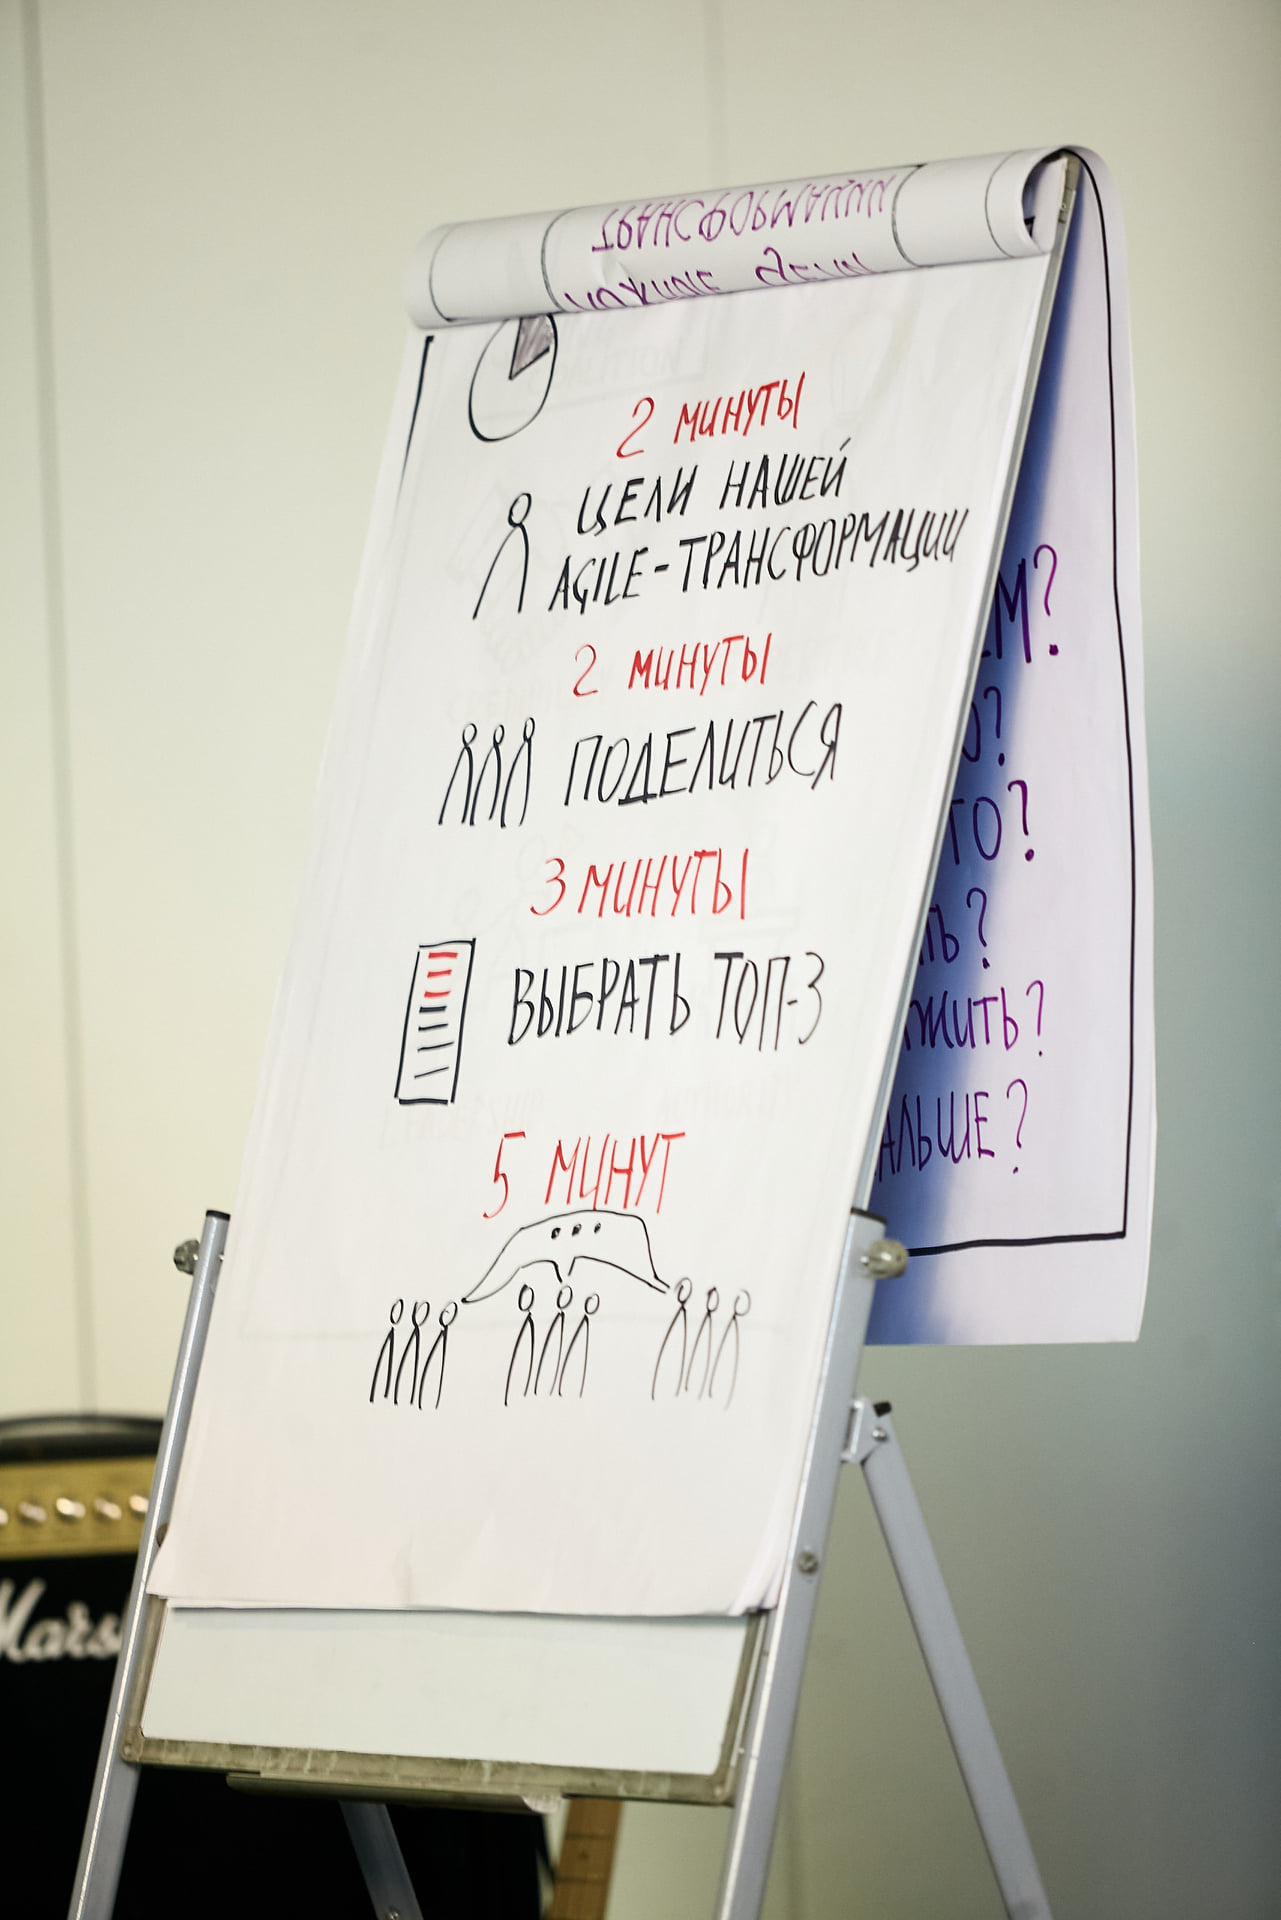 ТРАНСФОРМАЦИИ
2 МИНУТЫ
ЦЕЛИ НАШЕЙ
AGILE-ТРАНСФОРМАЦИИ
2 МИНУТЫ
ПОДЕЛИТЬСЯ
3 МИНУТЫ
ВЫБРАТЬ ТОП-3
5 МИНУТ
М?
О?
ТО?
ТЬ?
ЖИТЬ?
АЛЬШЕ?
Mars